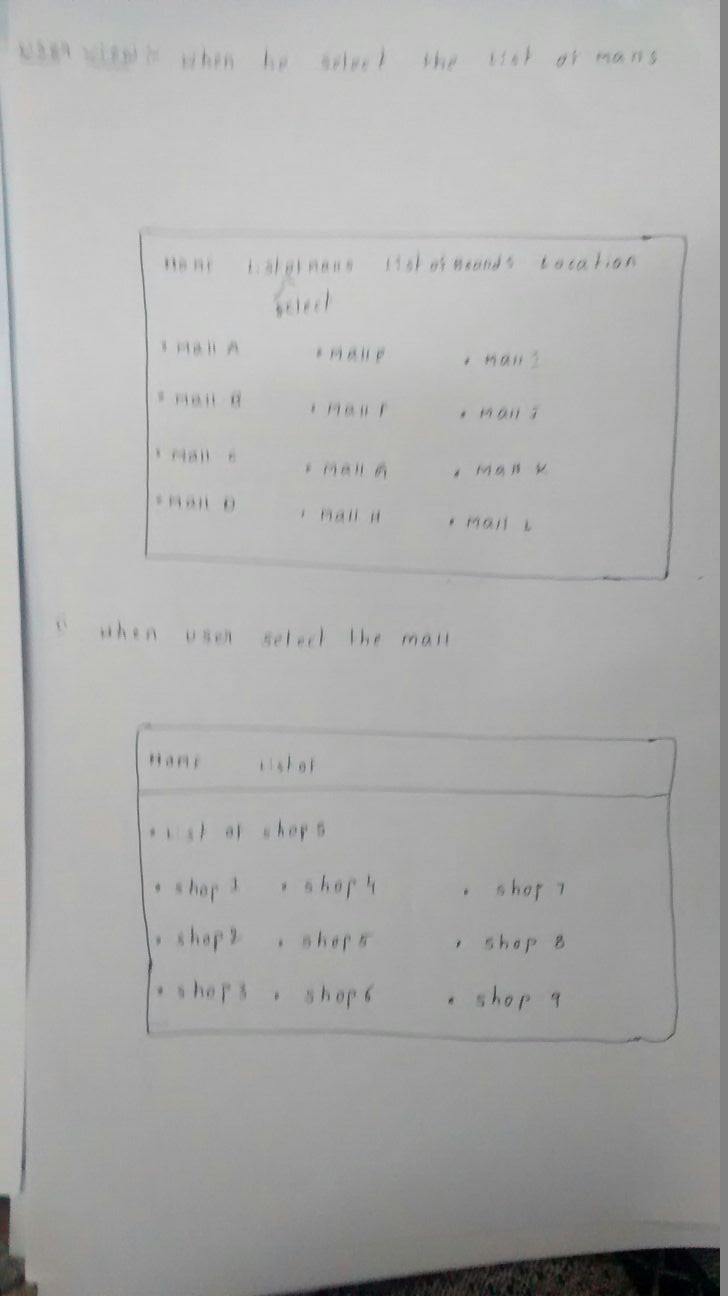 when he select the list of malls
Home List of malls List of Brands Location
select
• Mall A • Mall E • Mall I
• Mall B • Mall F • Mall J
• Mall C • Mall G • Mall K
• Mall D • Mall H • Mall L
when user select the mall
Home List of
• List of shops
• shop 1 • shop 4 • shop 7
• shop 2 • shop 5 • shop 8
• shop 3 • shop 6 • shop 9